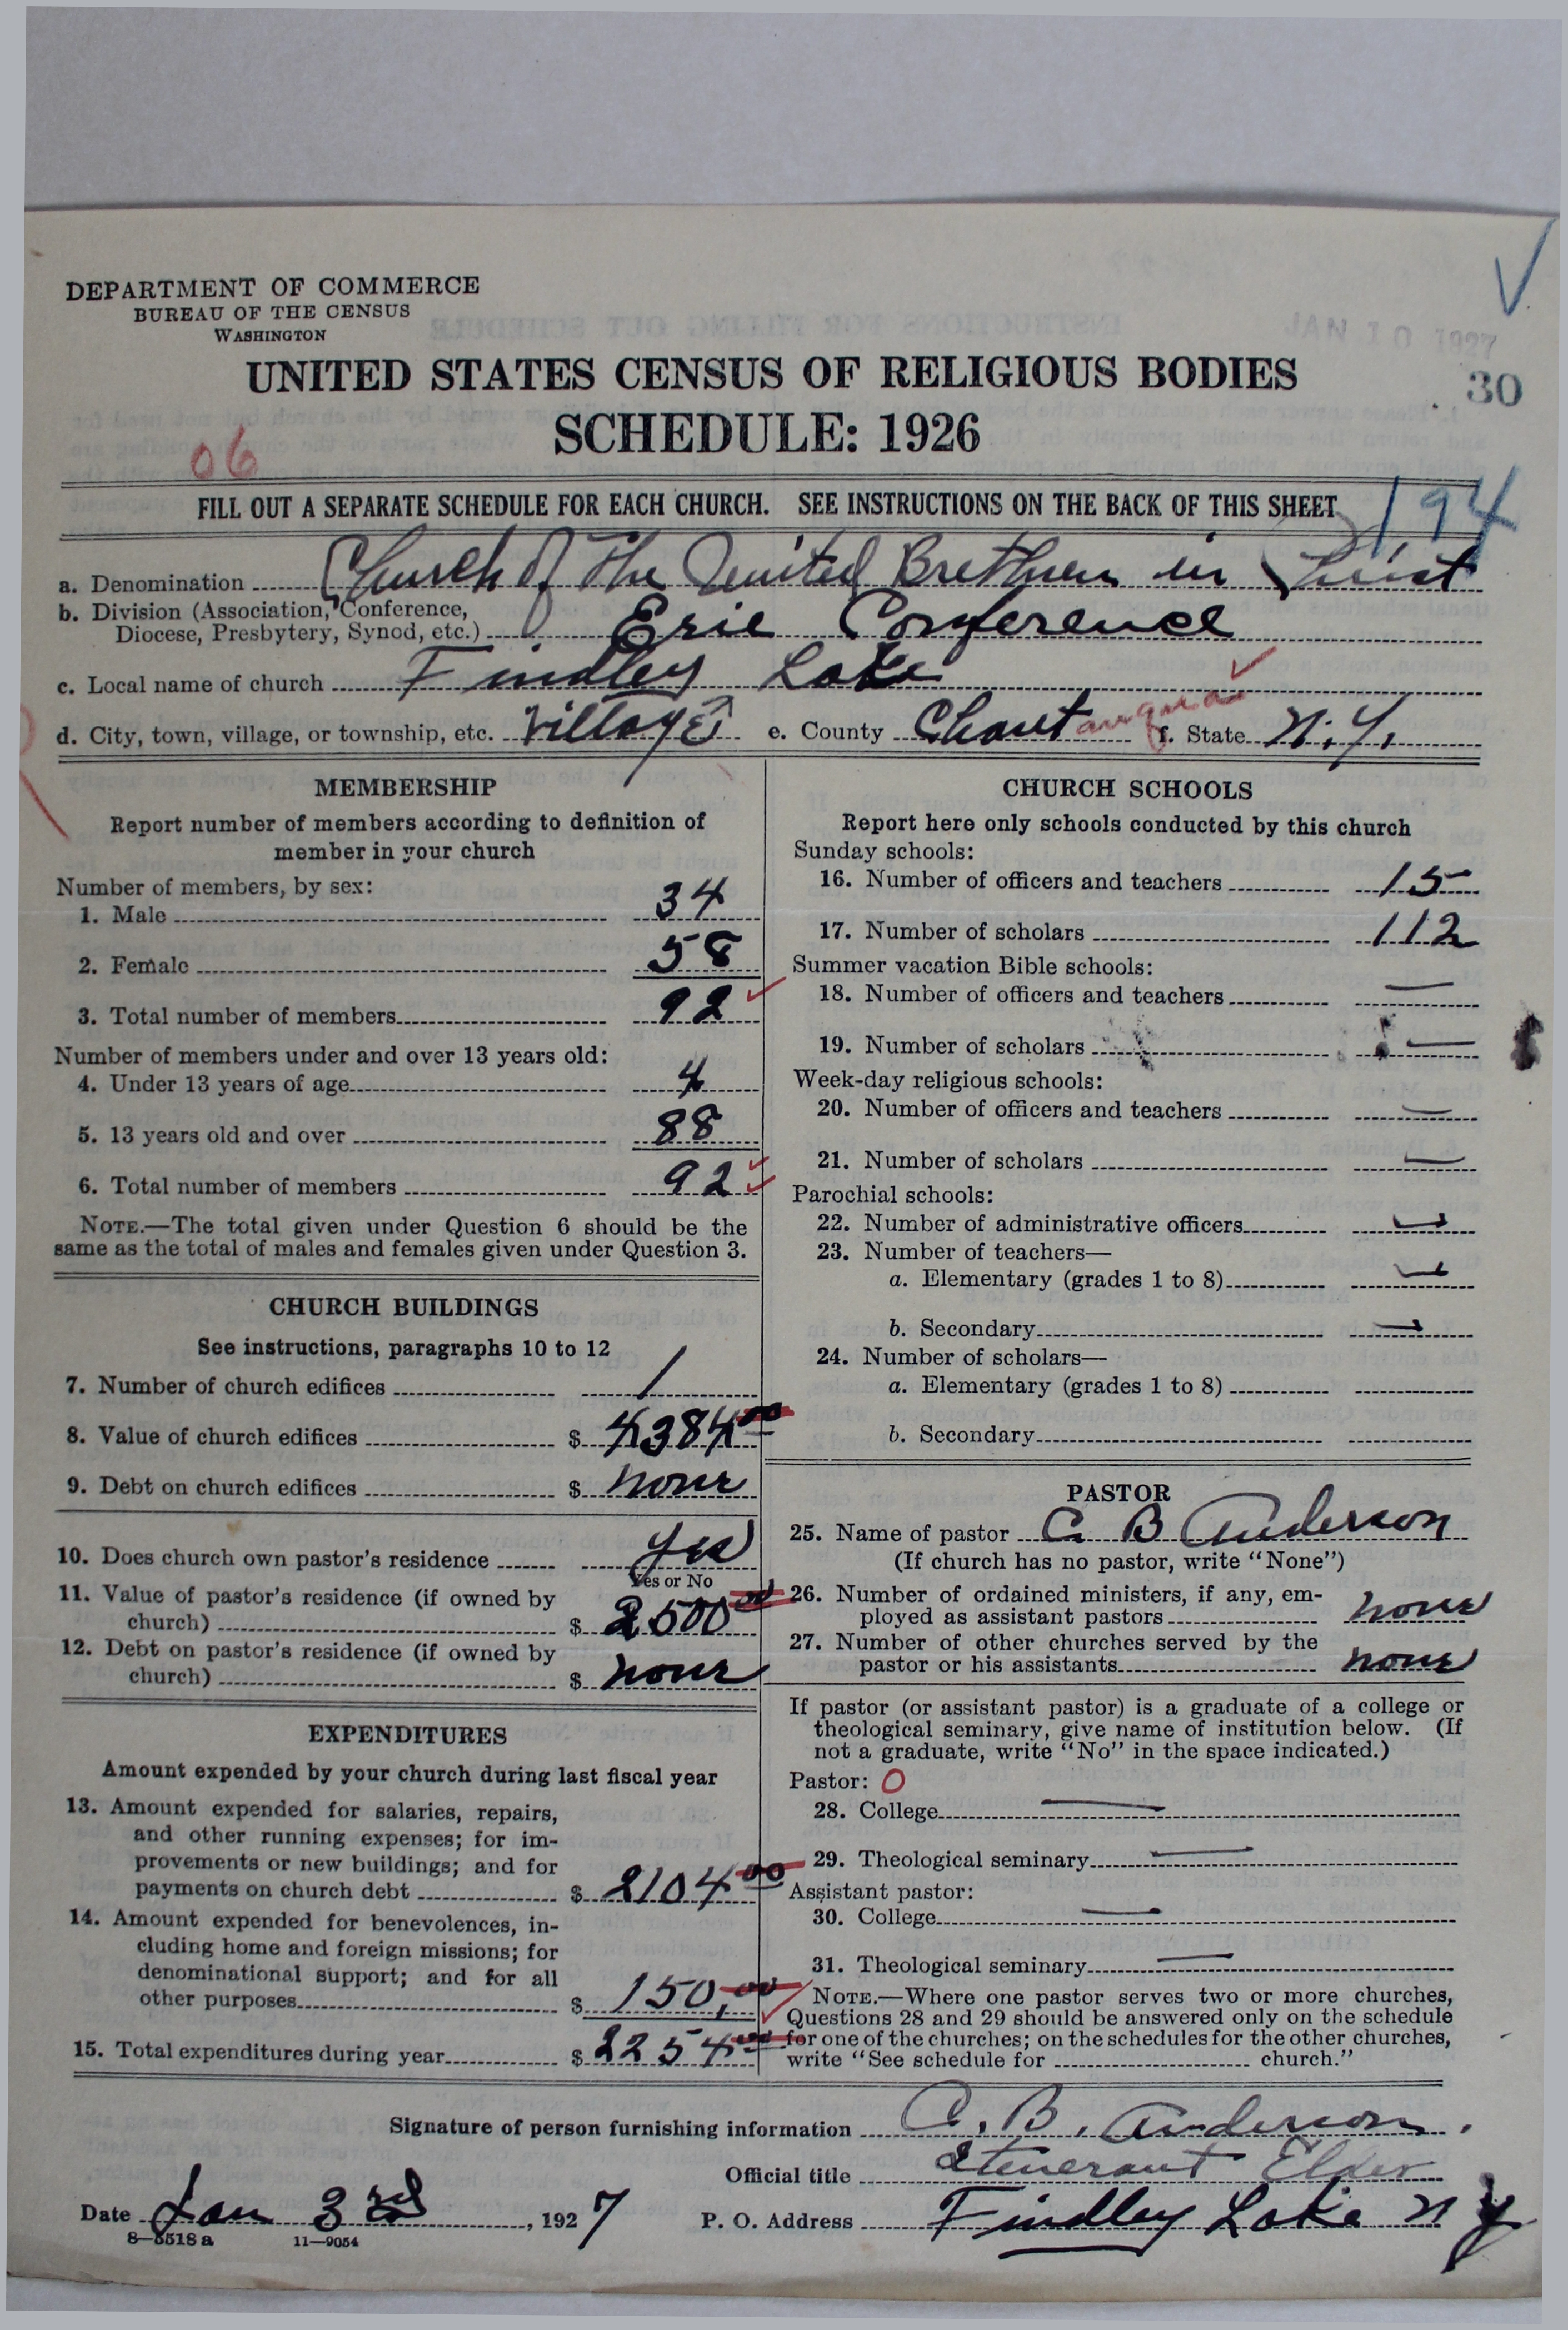 DEPARTMENT OF COMMERCE
BUREAU OF THE CENSUS
WASHINGTON
JAN 10 1927
UNITED STATES CENSUS OF RELIGIOUS BODIES
30
SCHEDULE: 1926
06
FILL OUT A SEPARATE SCHEDULE FOR EACH CHURCH. SEE INSTRUCTIONS ON THE BACK OF THIS SHEET
194
a. Denomination Church of the United Brethren in Christ
b. Division (Association, Conference,
Diocese, Presbytery, Synod, etc.) Erie Conference
c. Local name of church Findley Lake
d. City, town, village, or township, etc. Village e. County Chautauqua f. State N.Y.
MEMBERSHIP
Report number of members according to definition of
member in your church
Number of members, by sex:
1. Male 34
2. Female 58
3. Total number of members 92
Number of members under and over 13 years old:
4. Under 13 years of age 4
5. 13 years old and over 88
6. Total number of members 92
NOTE.—The total given under Question 6 should be the
same as the total of males and females given under Question 3.
CHURCH BUILDINGS
See instructions, paragraphs 10 to 12
7. Number of church edifices 1
8. Value of church edifices $ 4384 00
9. Debt on church edifices $ none
10. Does church own pastor's residence yes
Yes or No
11. Value of pastor's residence (if owned by
church) $ 2500 00
12. Debt on pastor's residence (if owned by
church) $ none
EXPENDITURES
Amount expended by your church during last fiscal year
13. Amount expended for salaries, repairs,
and other running expenses; for im-
provements or new buildings; and for
payments on church debt $ 2104 00
14. Amount expended for benevolences, in-
cluding home and foreign missions; for
denominational support; and for all
other purposes $ 150,00
15. Total expenditures during year $ 2254 00
CHURCH SCHOOLS
Report here only schools conducted by this church
Sunday schools:
16. Number of officers and teachers 15
17. Number of scholars 112
Summer vacation Bible schools:
18. Number of officers and teachers —
19. Number of scholars —
Week-day religious schools:
20. Number of officers and teachers —
21. Number of scholars —
Parochial schools:
22. Number of administrative officers —
23. Number of teachers—
a. Elementary (grades 1 to 8) —
b. Secondary —
24. Number of scholars—
a. Elementary (grades 1 to 8)
b. Secondary
PASTOR
25. Name of pastor C. B Anderson
(If church has no pastor, write "None")
26. Number of ordained ministers, if any, em-
ployed as assistant pastors none
27. Number of other churches served by the
pastor or his assistants none
If pastor (or assistant pastor) is a graduate of a college or
theological seminary, give name of institution below. (If
not a graduate, write "No" in the space indicated.)
Pastor: O
28. College —
29. Theological seminary —
Assistant pastor:
30. College —
31. Theological seminary —
NOTE.—Where one pastor serves two or more churches,
Questions 28 and 29 should be answered only on the schedule
for one of the churches; on the schedules for the other churches,
write "See schedule for church."
Signature of person furnishing information C. B. Anderson.
Official title Itenerant Elder
Date Jan 3rd, 1927 P. O. Address Findley Lake N Y
8—5518 a 11—9054